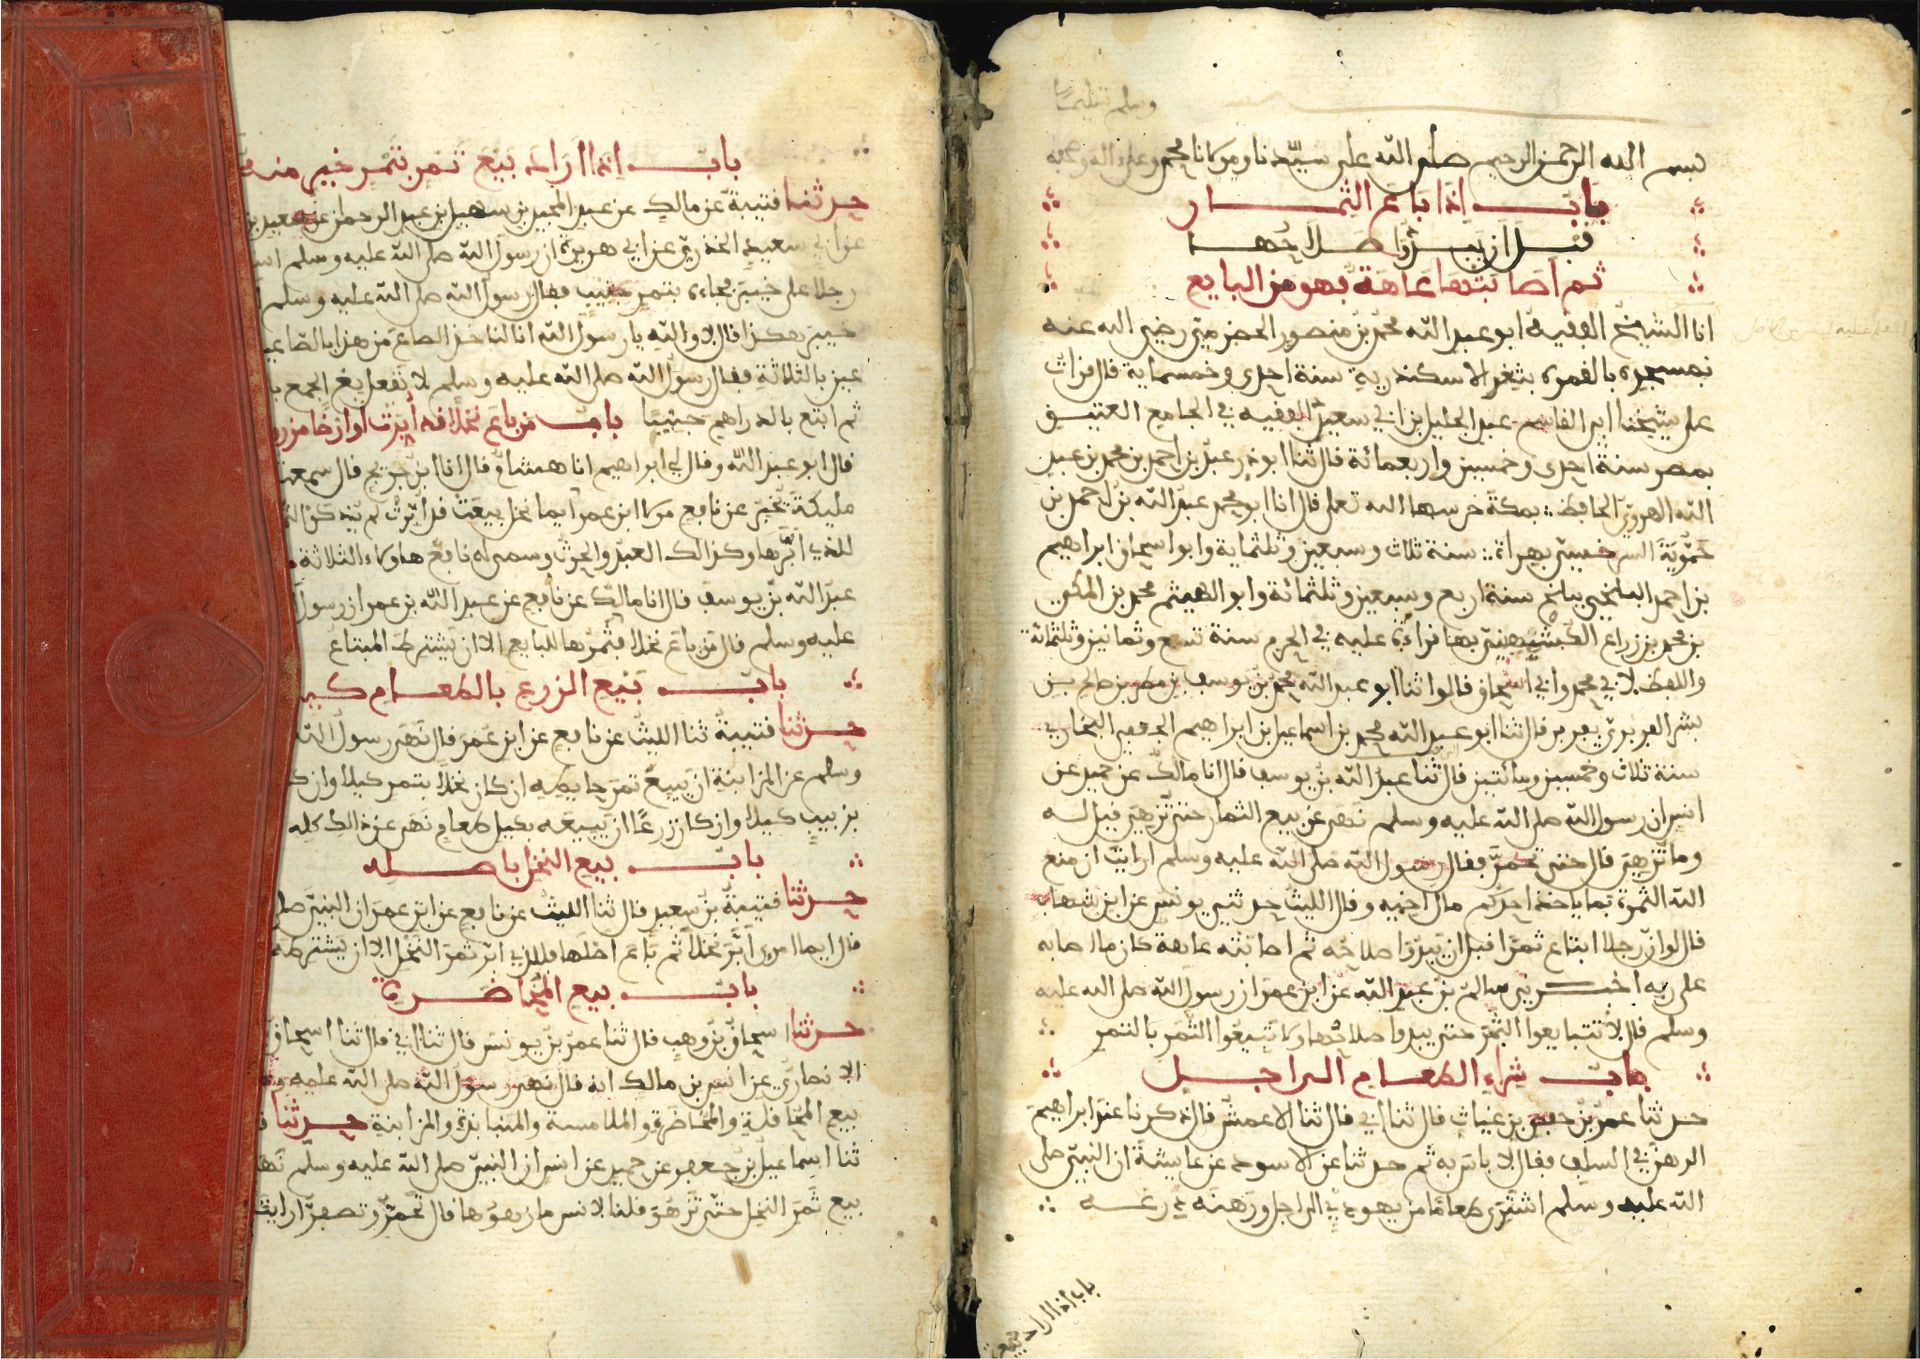 وسلم تسليما
بسم الله الرحمن الرحيم صلى الله على سيدنا ومولانا محمد وعلى اله وصحبه
باب اذا باع الثمار
قبل ان يبدوا صلاحها
ثم اصابتها عاهة فهو من البايع
انا الشيخ الفقيه ابو عبد الله محمد بن منصور الحضرمي رضي الله عنه
بمسجده بالقمرة بثغر الاسكندرية سنة احدى وخمسماية قال قرات
على شيخنا ابي القاسم عبد الجليل بن ابي سعيد الفقيه في الجامع العتيق
بمصر سنة احدى وخمسين واربعمائة قال ثنا ابو ذر عبد بن احمد بن محمد بن عبد
الله الهروي الحافظ بمكة حرسها الله تعلى قال انا ابو محمد عبد الله بن احمد بن
حموية السرخسي بهراة سنة ثلاث وسبعين وثلثماية وابو اسحاق ابراهيم
بن احمد البلخي ببلخ سنة اربع وسبعين وثلثمائة وابو الهيثم محمد بن المكي
بن محمد بن زراع الكشميهني بها قراءة عليه في المحرم سنة تسع وثمانين وثلثمائة
واللفظ لابي محمد وابي اسحاق قالوا ثنا ابو عبد الله محمد بن يوسف بن مطر بن صالح بن
بشر الفربري بفربر قال ثنا ابو عبد الله محمد بن اسماعيل بن ابراهيم الجعفي البخاري
سنة ثلاث وخمسين ومائتين قال ثنا عبد الله بن يوسف قال انا مالك عن حميد عن
انس ان رسول الله صلى الله عليه وسلم نهى عن بيع الثمار حتى تزهي فيل له
وما تزهي قال حتى تحمر فقال رسول الله صلى الله عليه وسلم ارايت ان منع
الله الثمرة بما ياخذ احدكم مال اخيه وقال الليث حدثني يونس عن ابن شهاب
قال لو ان رجلا ابتاع ثمرا قبل ان يبدوا صلاحه ثم اصابته عاهة كان ما اصابه
على ربه اخبرني سالم بن عبد الله عن ابن عمر ان رسول الله صلى الله عليه
وسلم قال لا تتبايعوا الثمر حتى يبدوا صلاحها ولا تبيعوا الثمر بالتمر
باب شراء الطعام الى اجل
حدثنا عمر بن حفص بن غياث قال ثنا ابي قال ثنا الاعمش قال ذكرنا عند ابراهيم
الرهن في السلف فقال لا باس به ثم حدثنا عن الاسود عن عايشة ان النبي صلى
الله عليه وسلم اشترى طعاما من يهودي الى اجل ورهنه درعه
باب اذا اراد بيع
باب اذا اراد بيع تمر بتمر خير منه
حدثنا قتيبة عن مالك عن عبد المجيد بن سهيل بن عبد الرحمن عن سعيد بن
عن ابي سعيد الخدري عن ابي هريرة ان رسول الله صلى الله عليه وسلم
رجلا على خيبر فجاءه بتمر جنيب فقال رسول الله صلى الله عليه وسلم
خيبر هكذا قال لا والله يا رسول الله انا لناخذ الصاع من هذا بالصاعين
عين بالثلاثة فقال رسول الله صلى الله عليه وسلم لا تفعل بع الجمع
ثم ابتع بالدراهم جنيبا باب من باع نخلا قد ابرت او ارضا مزر
قال ابو عبد الله وقال لي ابراهيم انا هشام قال انا ابن جريج قال سمعت
مليكة يخبر عن نافع مولى ابن عمر ايما نخل بيعت قد ابرت لم يذكر
للذي ابرها وكذالك العبد والحرث وسمى له نافع هاولاء الثلاثة
عبد الله بن يوسف قال انا مالك عن نافع عن عبد الله بن عمر ان رسول
عليه وسلم قال من باع نخلا فثمرها للبايع الا ان يشترط المبتاع
باب بيع الزرع بالطعام كيلا
حدثنا قتيبة ثنا الليث عن نافع عن ابن عمر قال نهى رسول الله
وسلم عن المزابنة ان يبيع تمر حايطه ان كان نخلا بتمر كيلا وان
بزبيب كيلا وان كان زرعا ان يبيعه بكيل طعام نهى عن ذالك كله
باب بيع النخل باصله
حدثنا قتيبة بن سعيد قال ثنا الليث عن نافع عن ابن عمر ان النبي صلى
قال ايما امرى ابر نخلا ثم باع اصلها فللذي ابر ثمر النخل الا ان يشترطه
باب بيع المخاضرة
حدثنا اسحاق بن وهب قال ثنا عمر بن يونس قال ثنا ابي قال ثنا اسحاق
الانصاري عن انس بن مالك انه قال نهى رسول الله صلى الله عليه
بيع المحاقلة والمخاضرة والملامسة والمنابذة والمزابنة حدثنا
ثنا اسماعيل بن جعفر عن حميد عن انس ان النبي صلى الله عليه وسلم نهى
بيع ثمر النخل حتى تزهو فقلنا لانس ما زهوها قال تحمر وتصفر ارايت